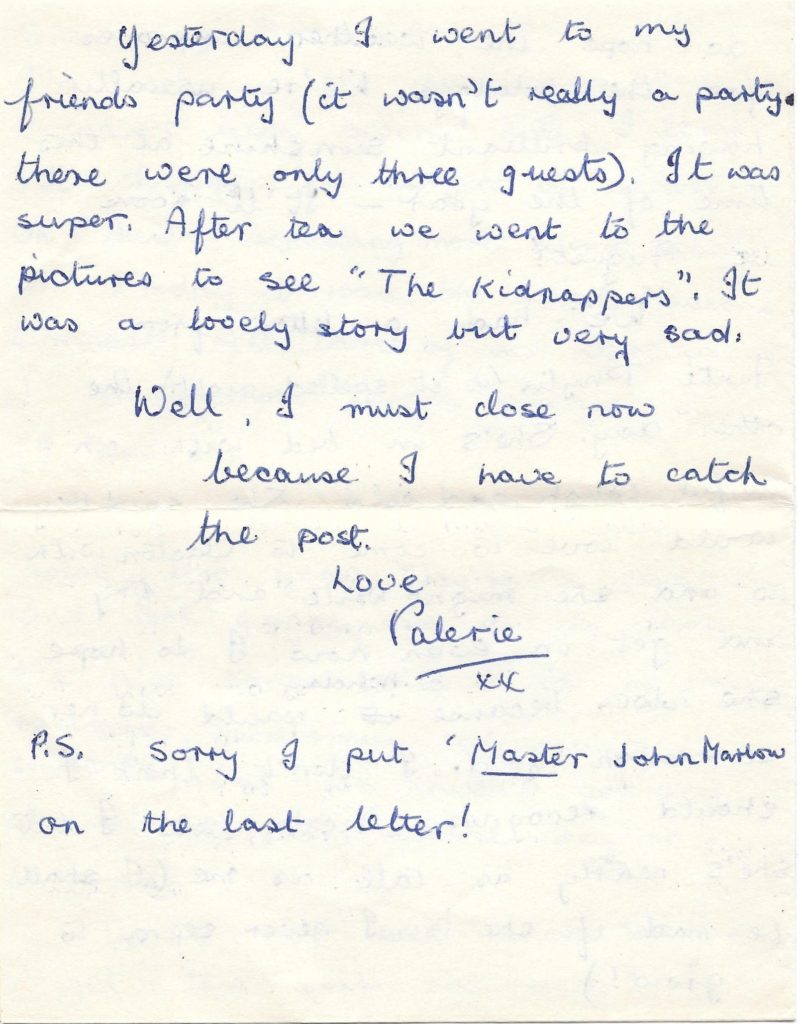 Yesterday I went to my
friends party (it wasn't really a party.
there were only three guests). It was
super. After tea we went to the
pictures to see "The Kidnappers". It
was a lovely story but very sad.
Well, I must close now
because I have to catch
the post.
Love
Valerie
xx
P.S. Sorry I put 'Master John Marlow
on the last letter!